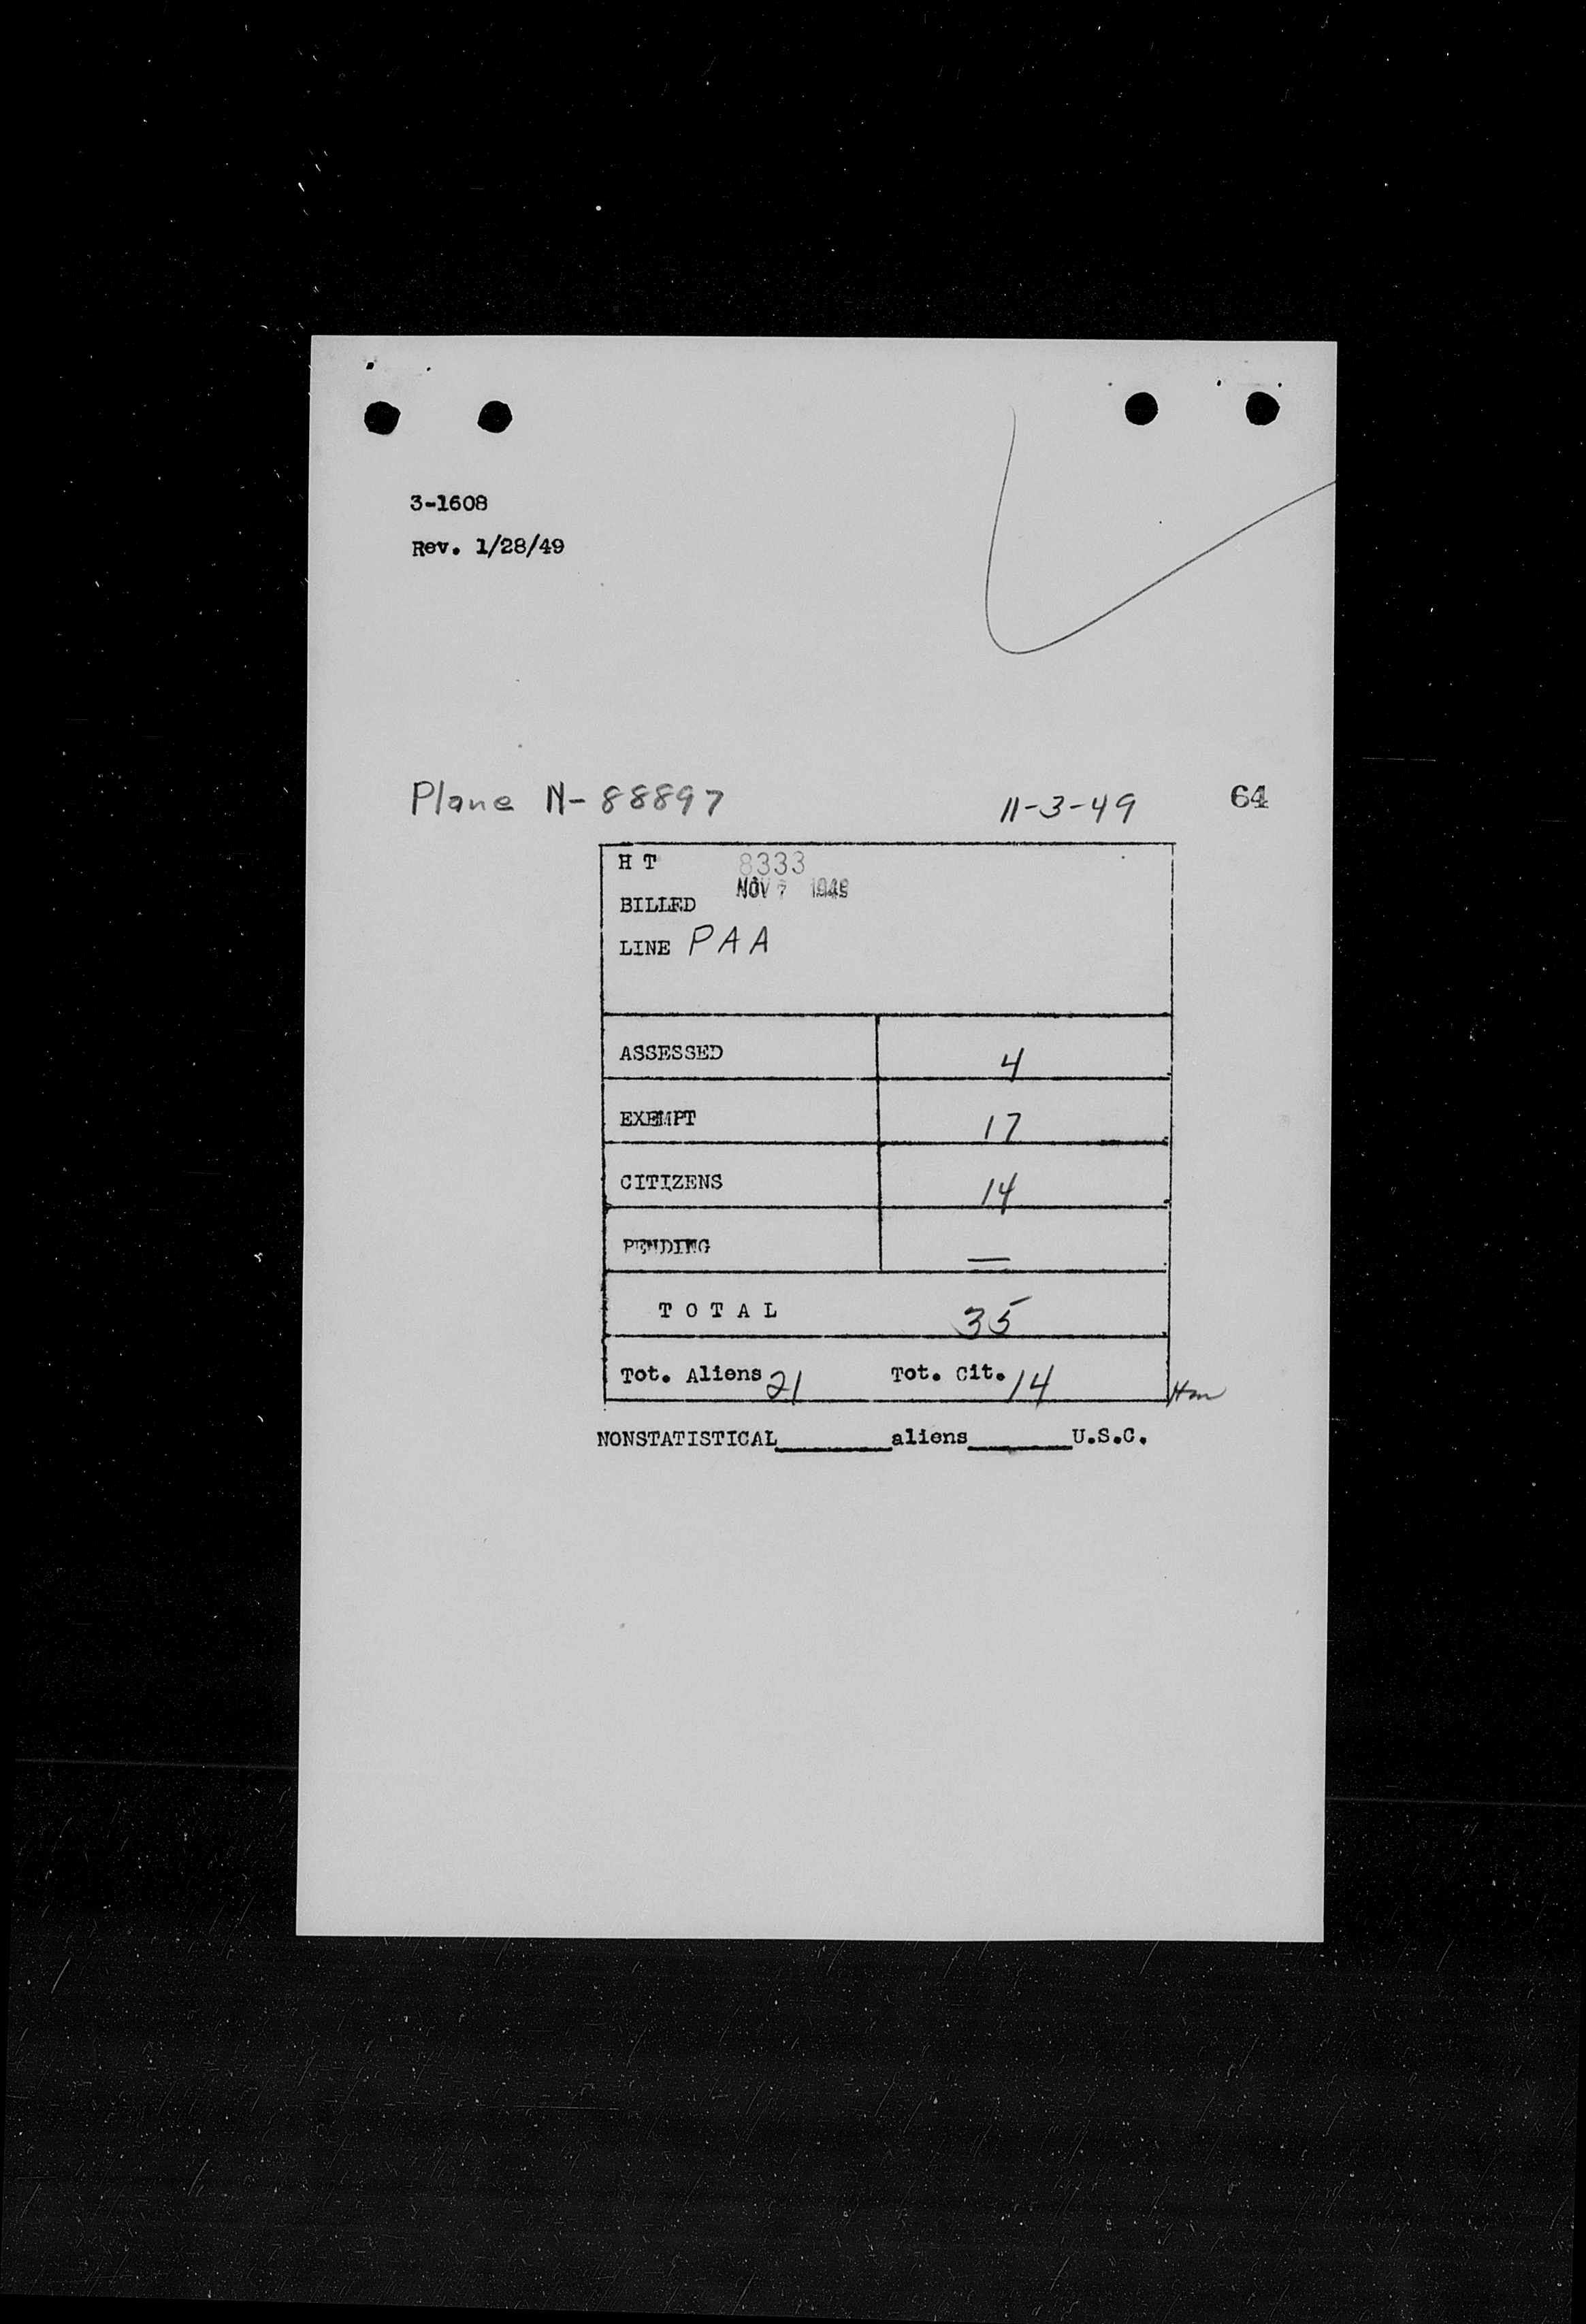 3-1608
Rev. 1/28/49
Plane N-88897 11-3-49 64
H T 8333
NOV 7 1949
BILLED
LINE PAA
ASSESSED 4
EXEMPT 17
CITIZENS 14
PENDING —
T O T A L 35
Tot. Aliens 21 Tot. Cit. 14 Hm
NONSTATISTICAL________aliens_______U.S.C.